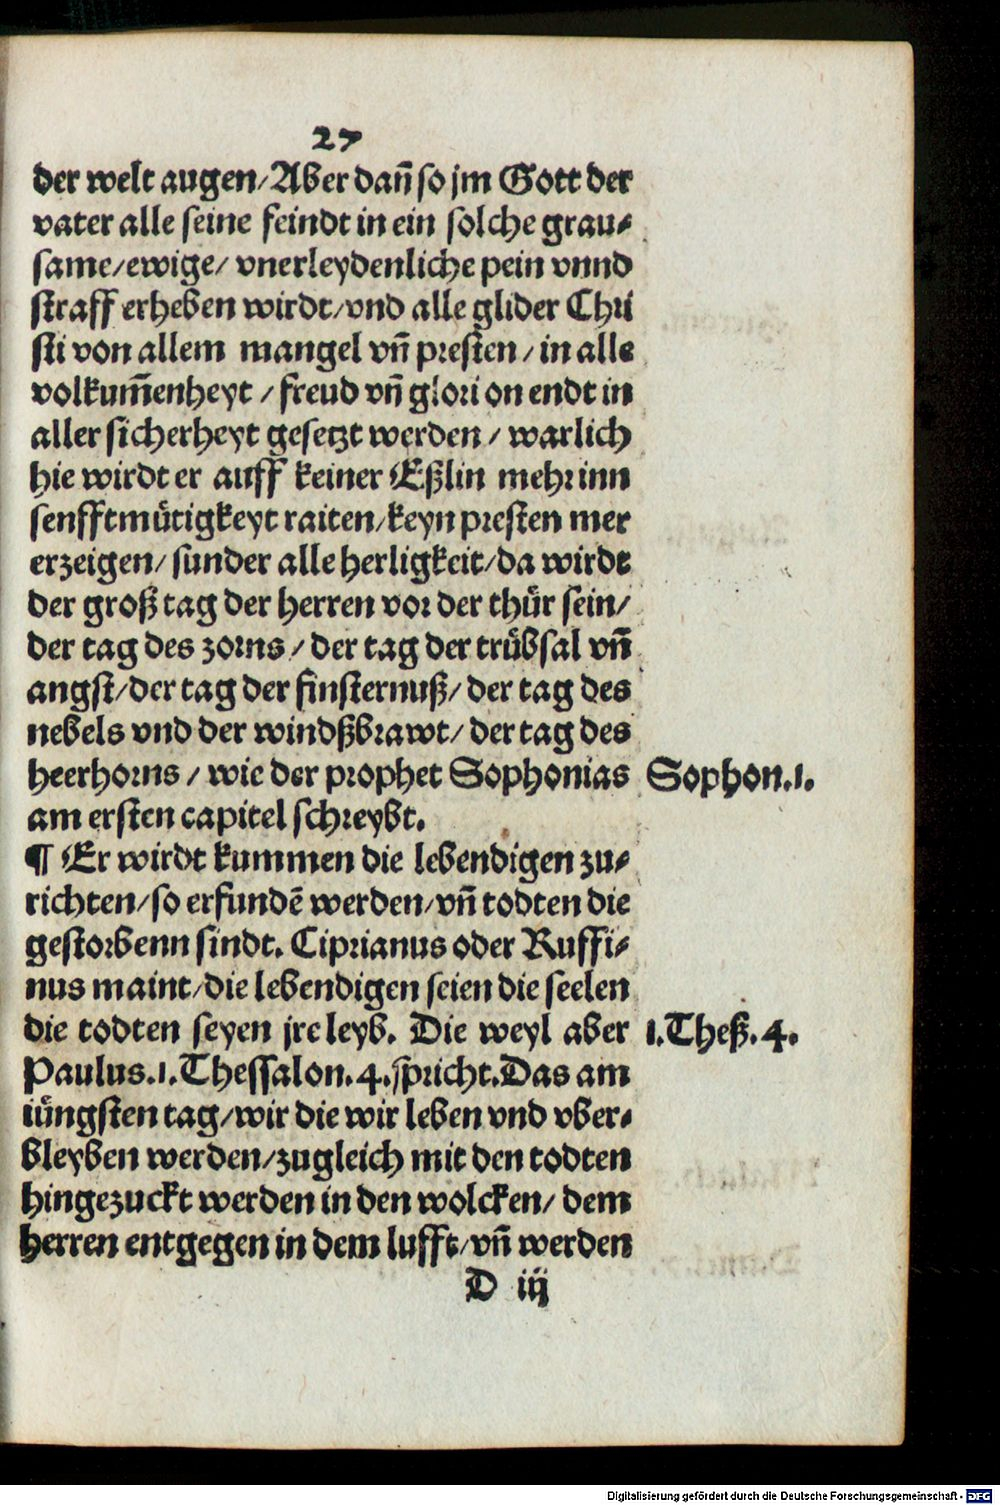 27
der welt augen/Aber dañ so jm Gott der
vater alle seine feindt in ein solche grau⸗
same/ewige/ vnerleydenliche pein vnnd
straff erheben wirdt/vnd alle glider Chri
sti von allem mangel vñ presten/ in alle
volkum̃enheyt / freud vñ glori on endt in
aller sicherheyt gesetzt werden/ warlich
hie wirdt er auff keiner Eßlin mehr inn
senfftmütigkeyt raiten/keyn presten mer
erzeigen/ sunder alle herligkeit/da wirdt
der groß tag der herren vor der thür sein/
der tag des zorns/ der tag der trübsal vñ
angst/der tag der finsternuß/ der tag des
nebels vnd der windßbrawt/ der tag des
heerhorns/ wie der prophet Sophonias
Sophon.1.
am ersten capitel schreybt.
¶ Er wirdt kummen die lebendigen zu⸗
richten/so erfundē werden/vñ todten die
gestorbenn sindt. Ciprianus oder Ruffi⸗
nus maint/die lebendigen seien die seelen
die todten seyen jre leyb. Die weyl aber
1.Theß.4.
Paulus.1.Thessalon.4.spricht.Das am
iüngsten tag/wir die wir leben vnd vber⸗
bleyben werden/zugleich mit den todten
hingezuckt werden in den wolcken/ dem
herren entgegen in dem lufft/vñ werden
D iij
Digitalisierung gefördert durch die Deutsche Forschungsgemeinschaft - DFG